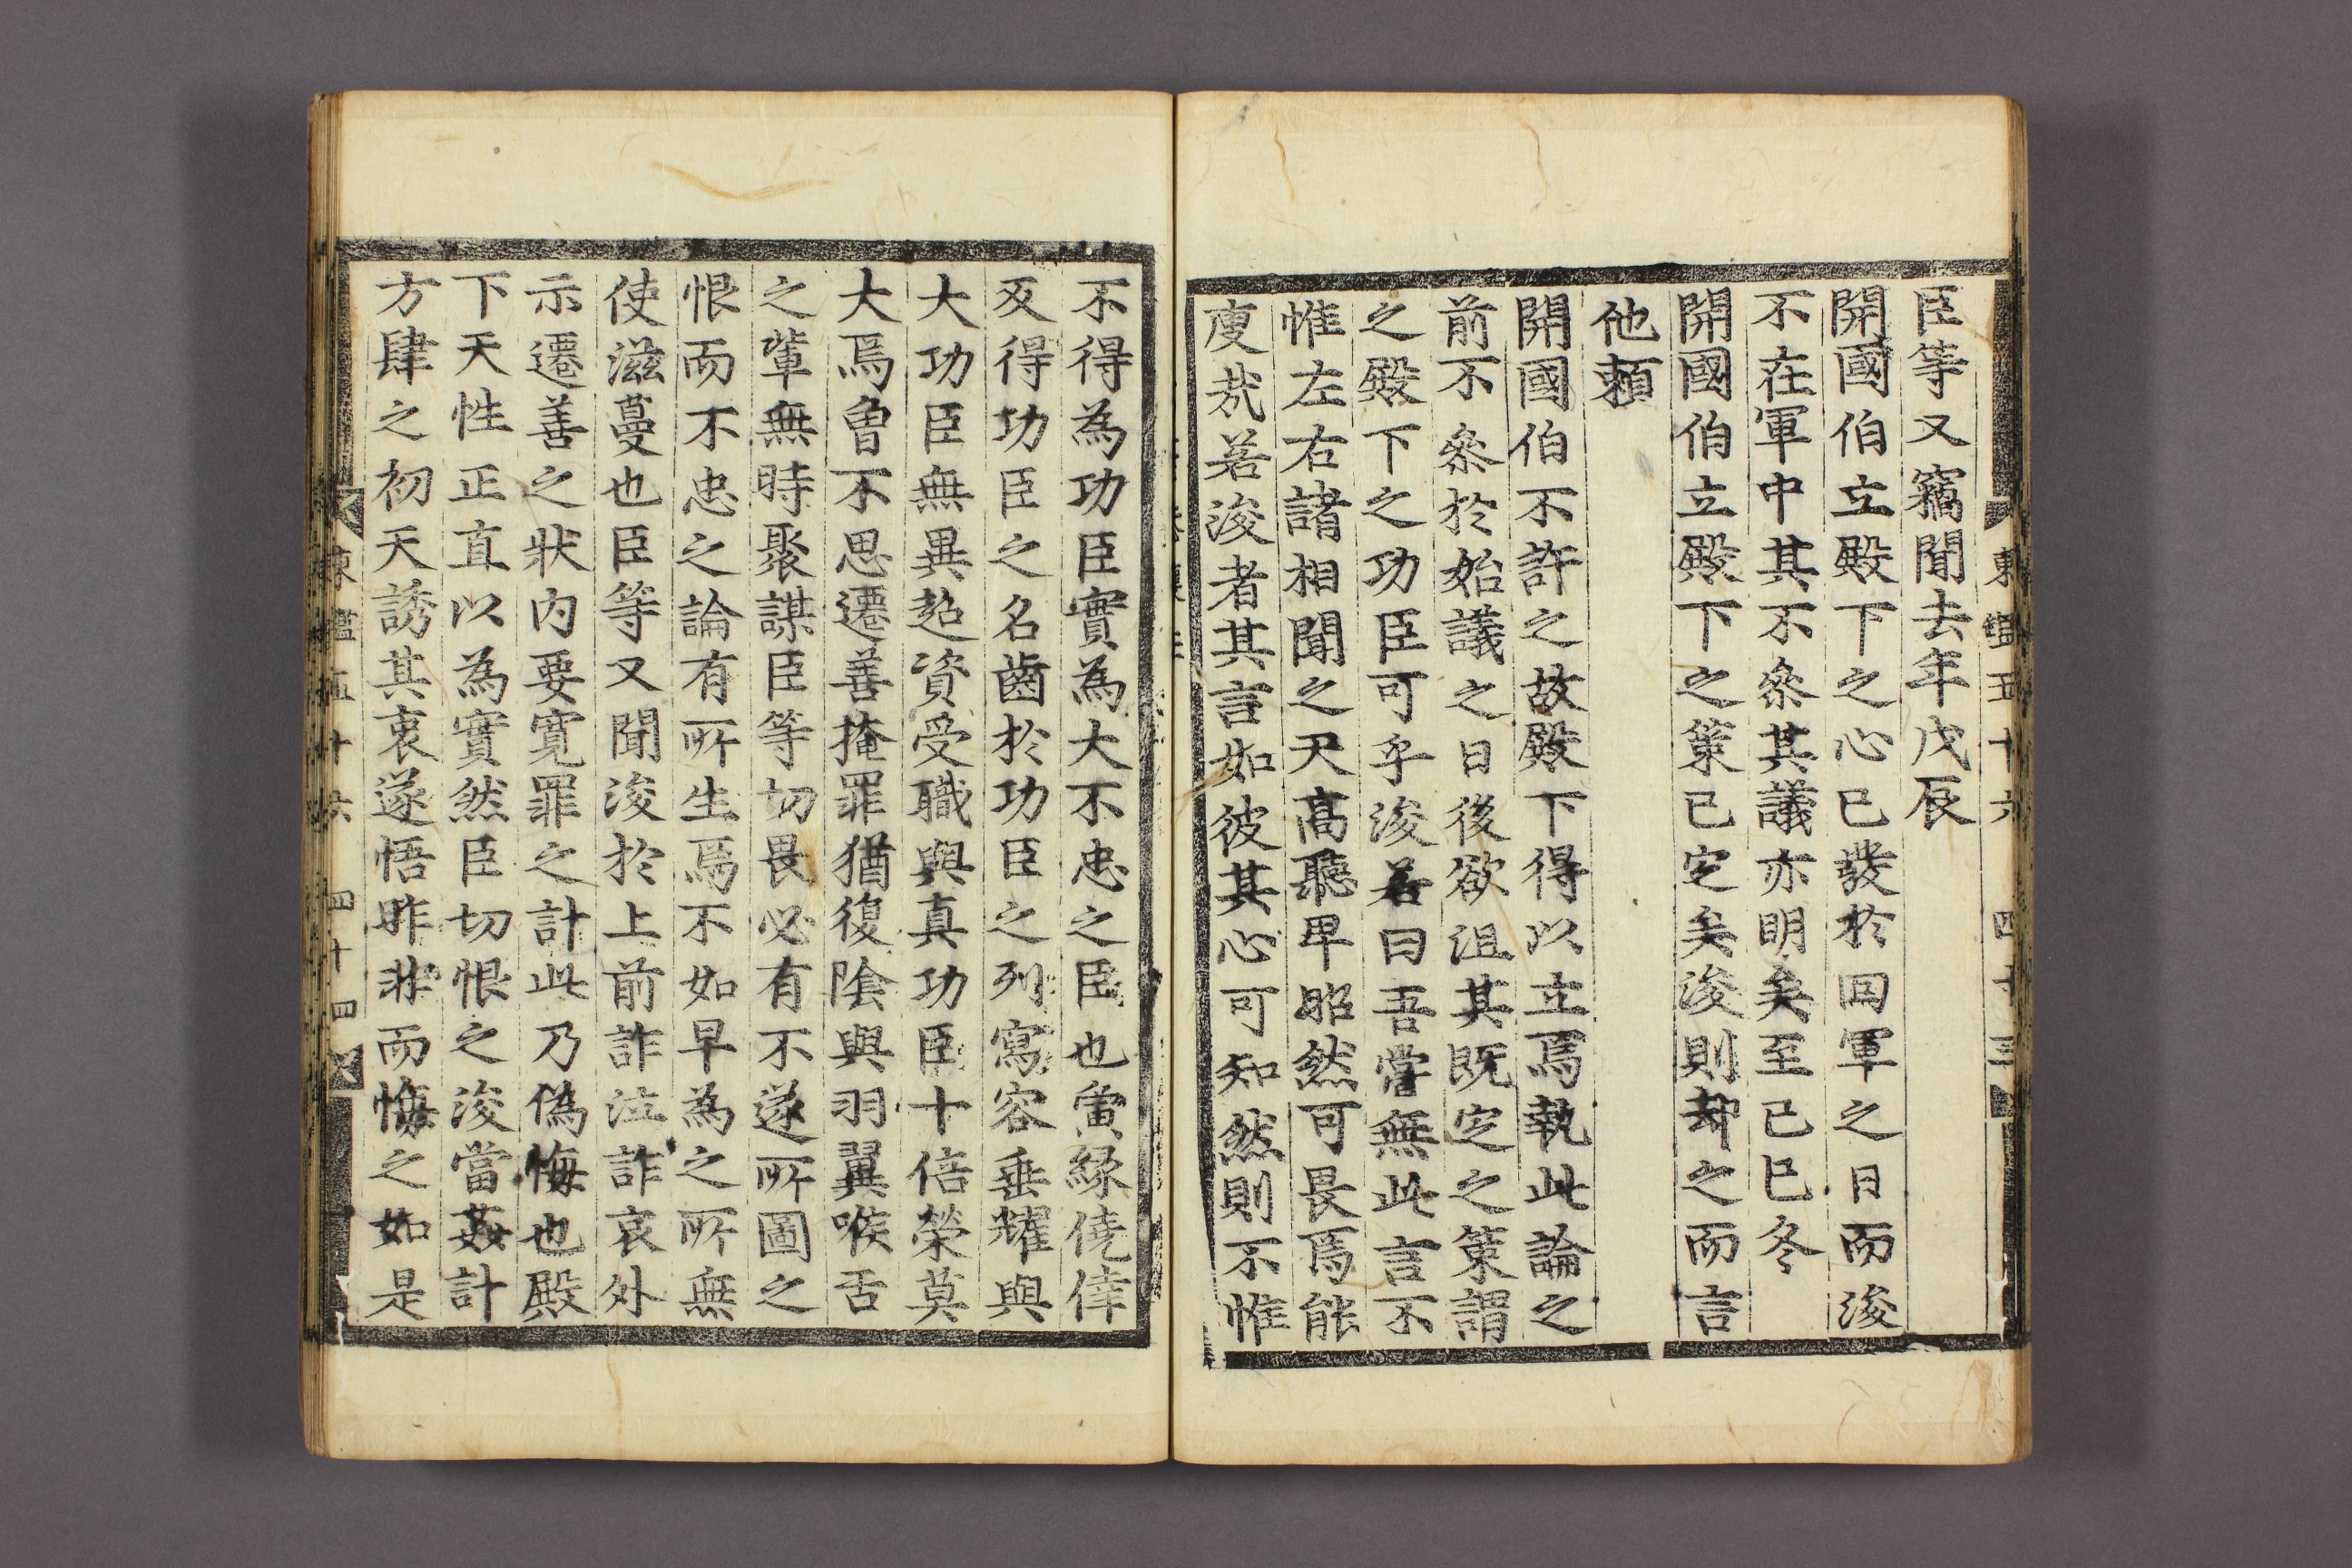 東鑑五十六 四十三
臣等又竊聞去年戊辰
開國伯立殿下之心已發於回軍之日而浚
不在軍中其不叅其議亦明矣至己巳冬
開國伯立殿下之策已定矣浚則却之而言
他頼
開國伯不許之故殿下得以立焉執此論之
前不叅於始議之日後欲沮其既定之策謂
之殿下之功臣可乎浚若曰吾嘗無此言不
惟左右諸相聞之天髙聽卑昭然可畏焉能
廋㢤若浚者其言如彼其心可知然則不惟
不得為功臣實為大不忠之臣也夤緣僥倖
反得功臣之名齒於功臣之列寫容垂耀與
大功臣無異超資受職與真功臣十倍榮莫
大焉曾不思遷善掩罪猶復陰與羽翼喉舌
之輩無時聚謀臣等切畏必有不遂所圖之
恨而不忠之論有所生焉不如早為之所無
使滋蔓也臣等又聞浚於上前詐泣詐哀外
示遷善之狀内要寬罪之計此乃偽悔也殿
下天性正直以為實然臣切恨之浚當姦計
方肆之初天誘其衷遂悟昨非而悔之如是
東鑑五十六 四十四